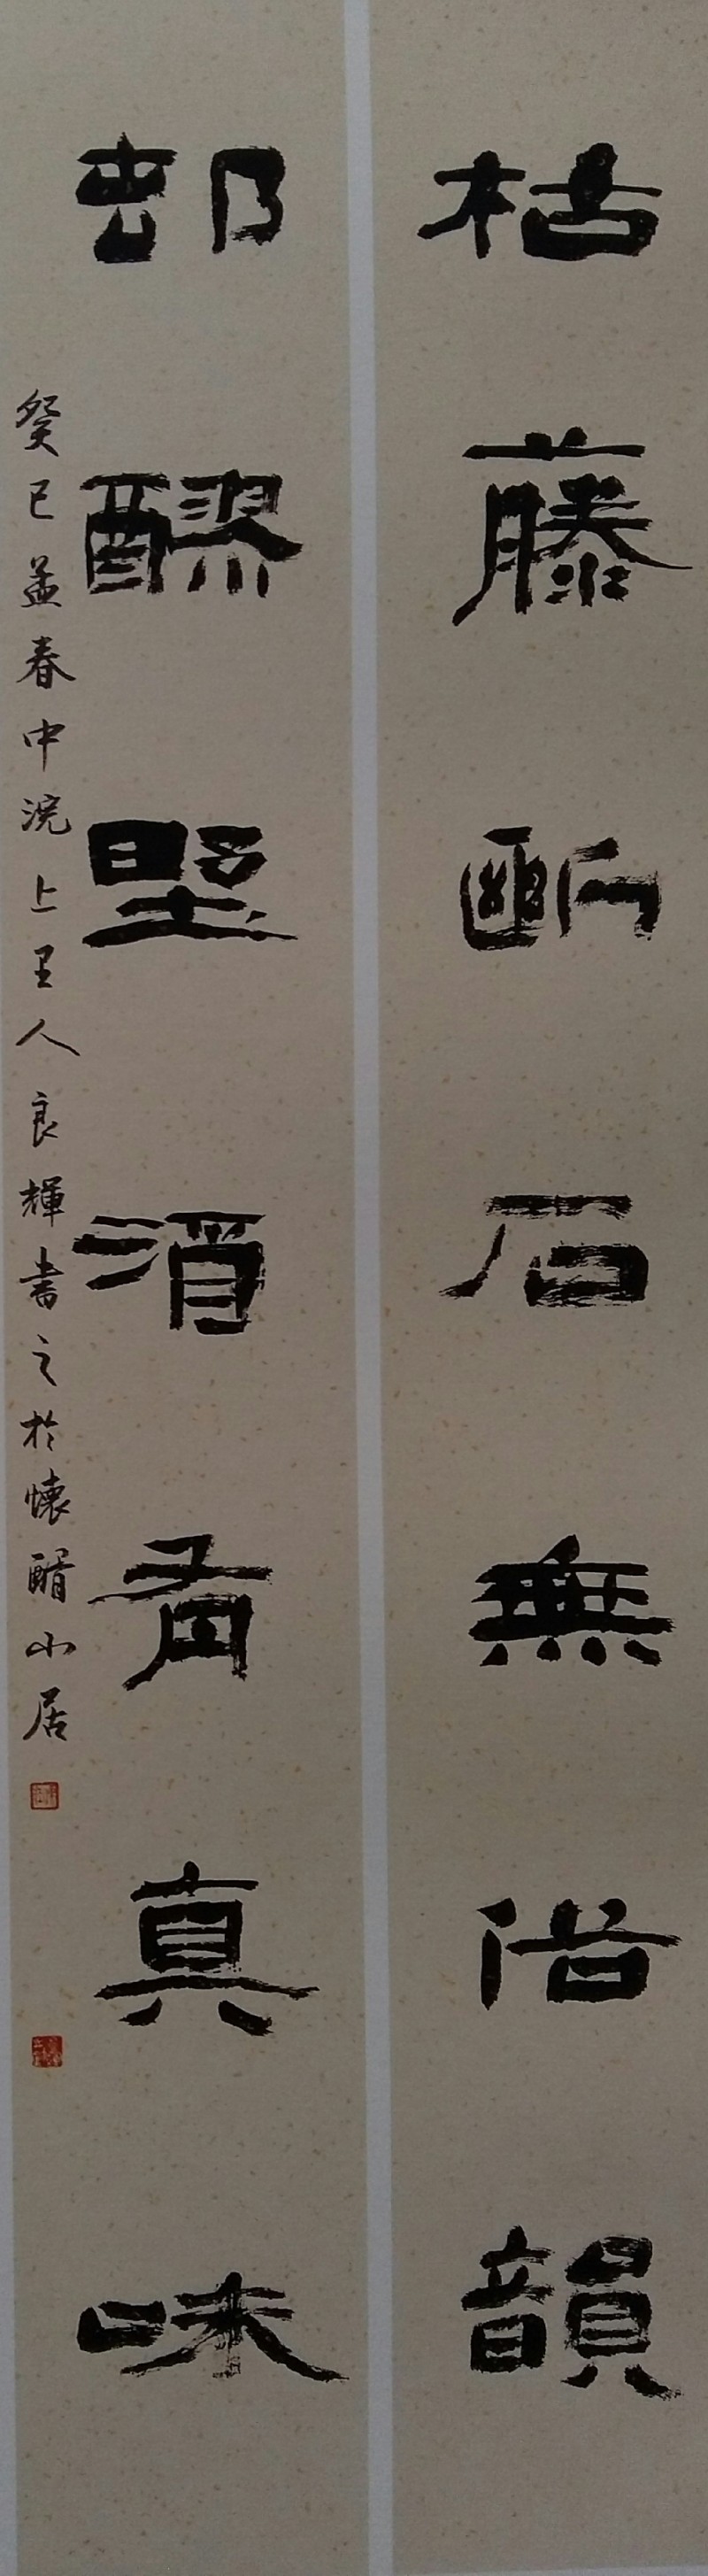 枯藤斷石無俗韻
邨醪野酒有真味
癸巳孟春中浣上里人良輝書之於懷醑小居